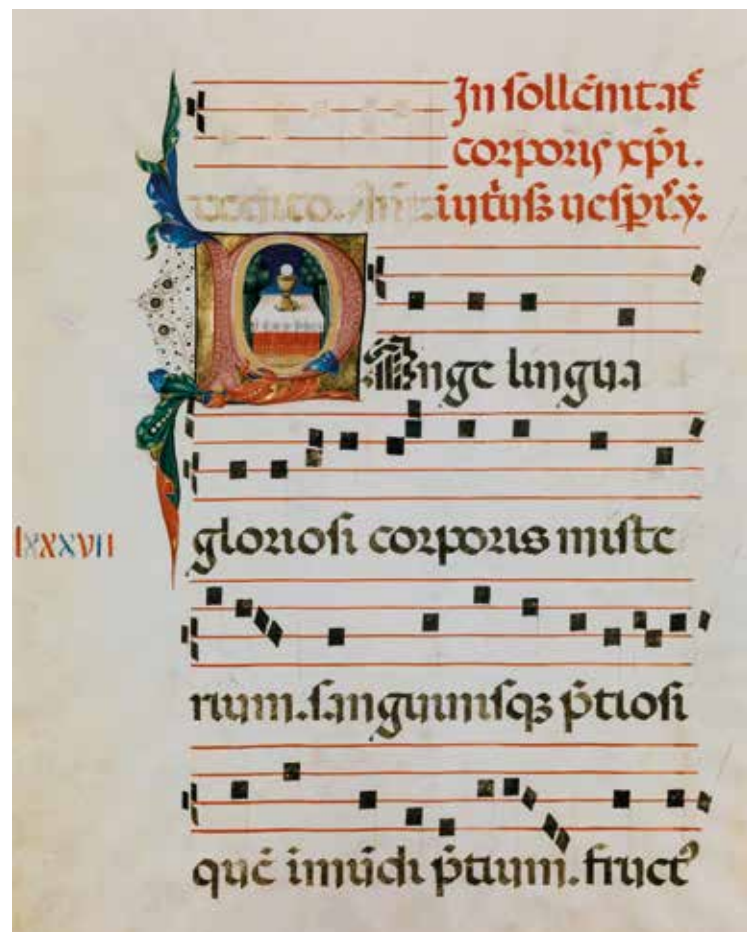 In sollẽnitatẽ
corporis xp̃i.
PAnge lingua
lxxxvii
gloriosi corporis miste
rium. sanguinisqꝫ p̃tiosi
quẽ ĩ mũdi p̃tium. fructꝰ